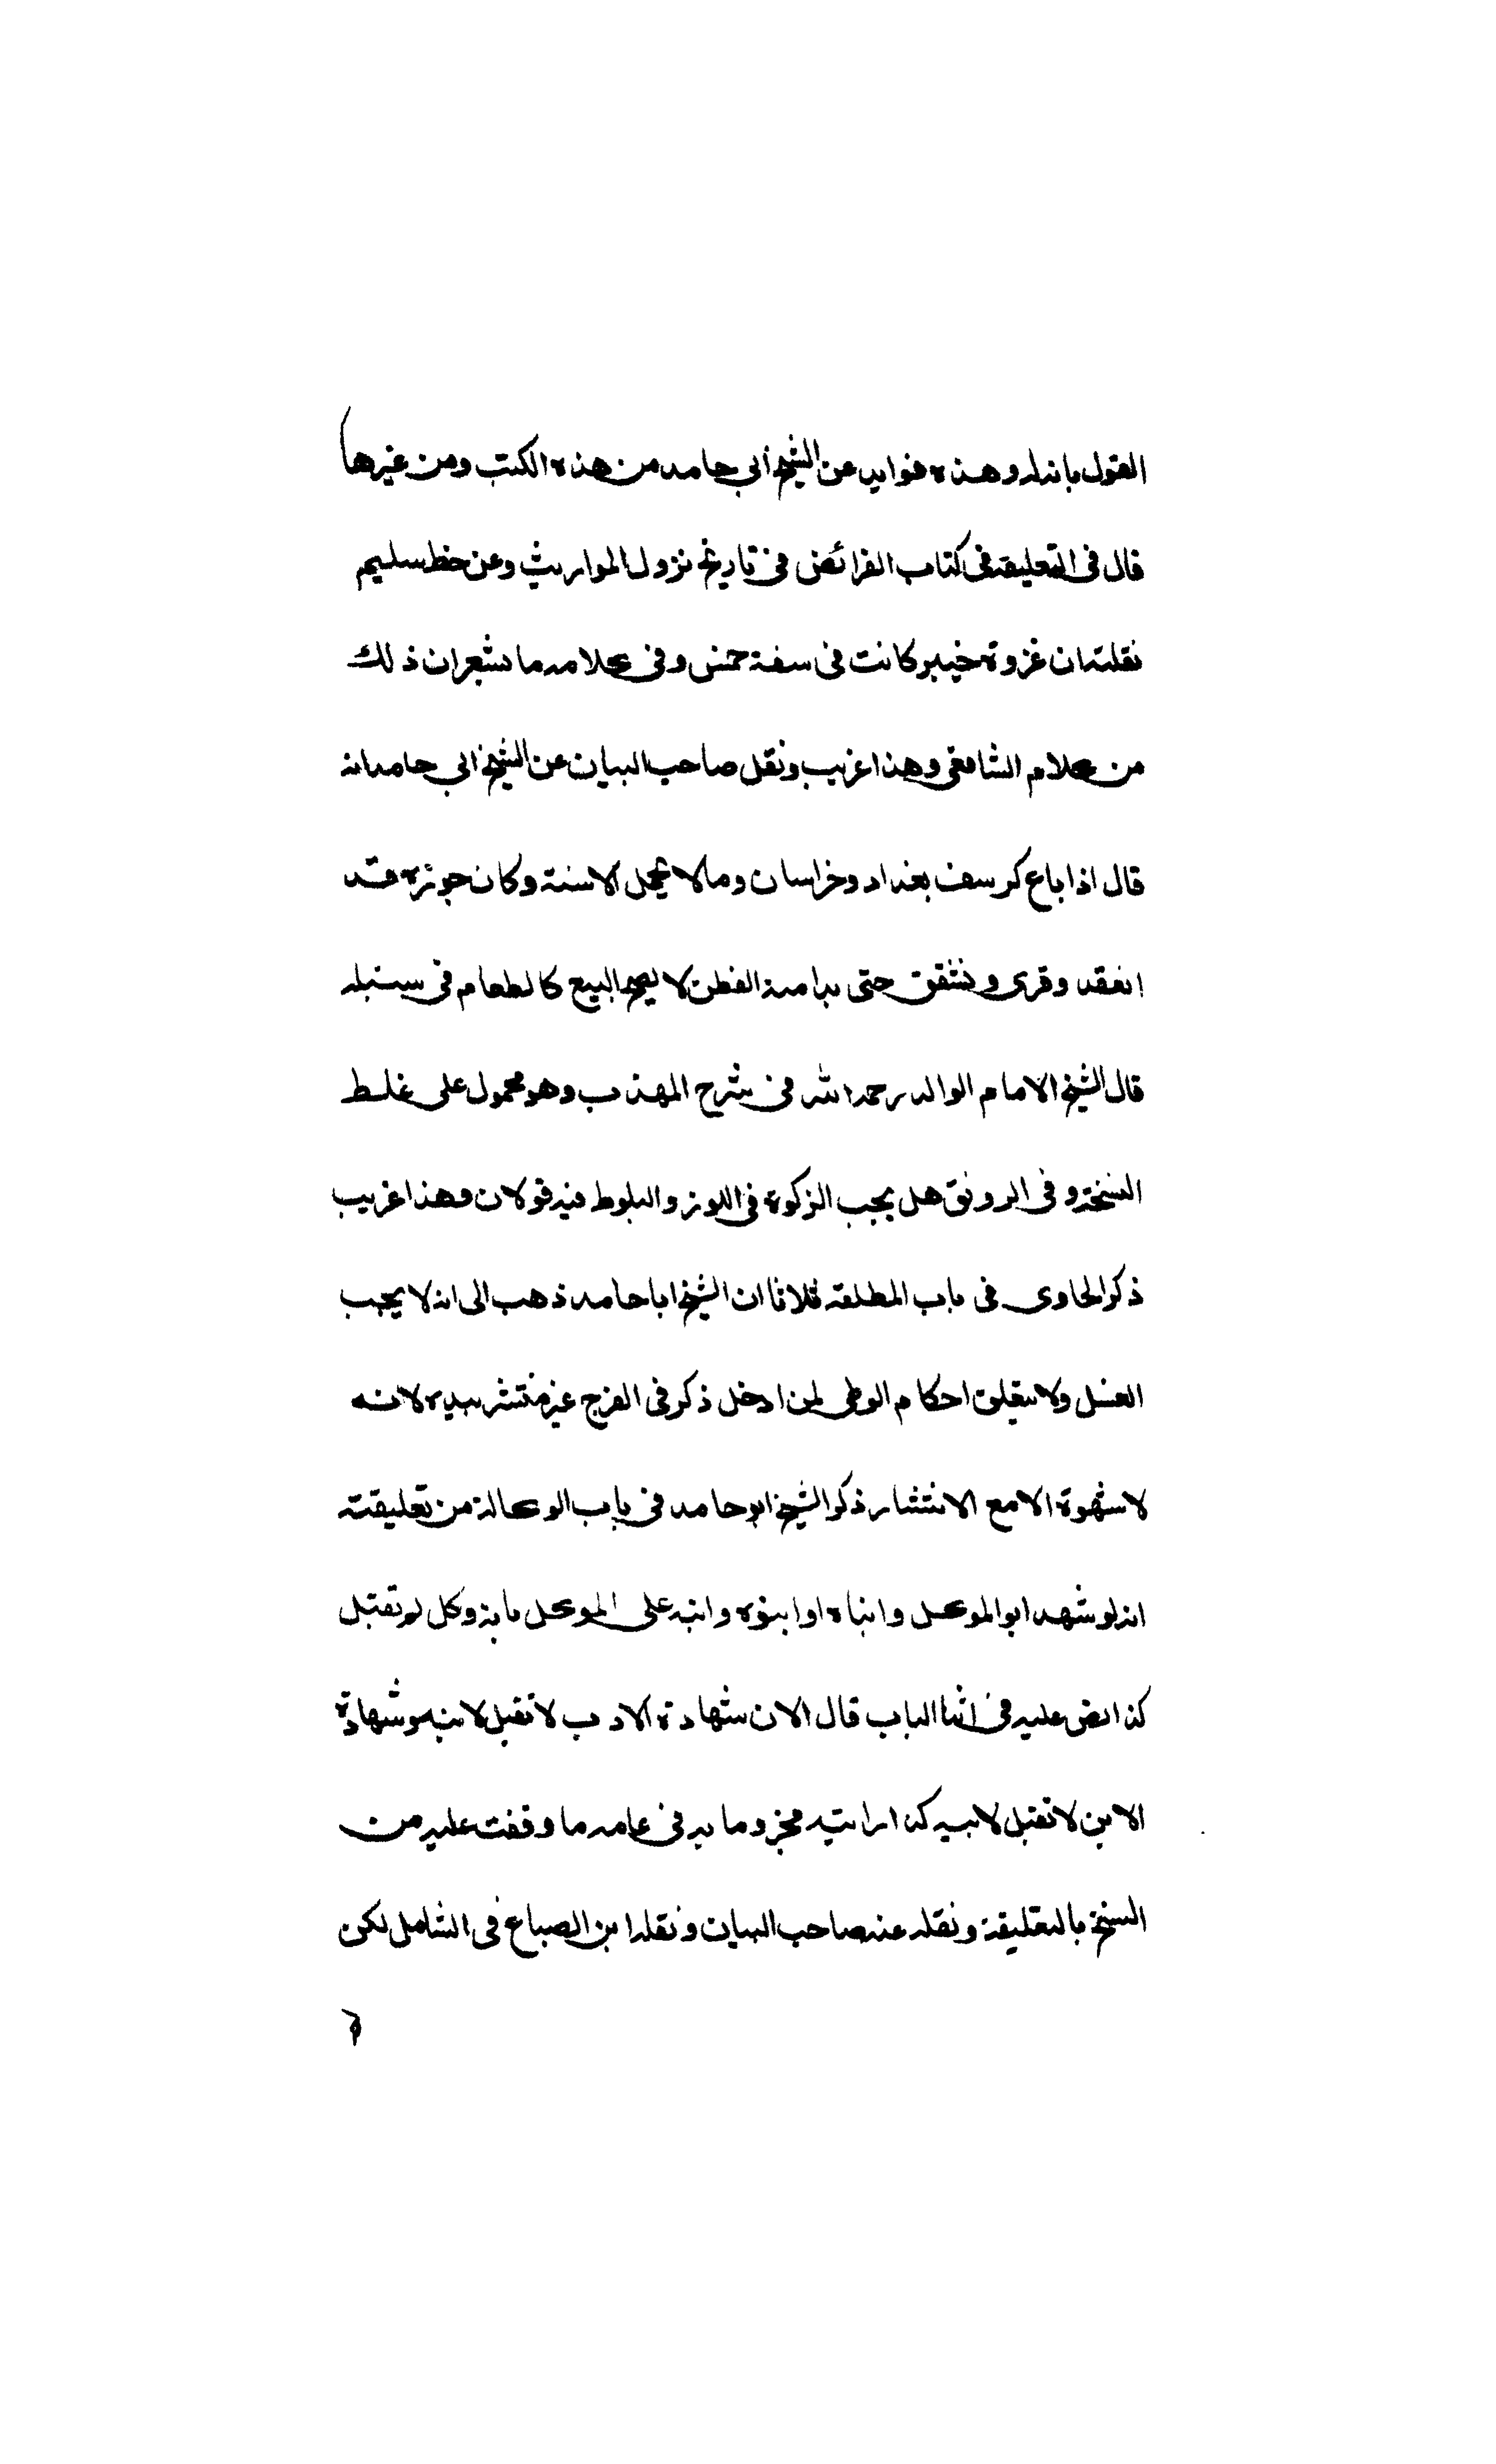 القول بانه له وهذه فوايد عن الشيخ أبى حامد من هذه الكتب ومن غيرها
قال فى التعليقة فى كتاب الفرائض فى تاريخ نزول المواريث وعن خط سليم
نقلته ان غزوة خيبر كانت فى سنة خمس وفى كلامه ما يشعر ان ذلك
من كلام الشافعى وهذا غريب ونقل صاحب البيان عن الشيخ ابى حامد انه
قال اذا باع كرسف بغداد وخراسان ومالا يحمل الا سنة وكان جوزه قد
انعقد وقوى وتشقق حتى بدا منه القطن لا يصح البيع كالطعام فى سنبله
قال الشيخ الامام الوالد رحمه الله فى شرح المهذب وهو محمول على غلط
النسخة وفى الرونق هل يجب الزكوة فى اللوز والبلوط فيه قولان وهذا غريب
ذكر الحاوى فى باب المطلقة ثلاثا ان الشيخ ابا حامد ذهب الى انه لا يجب
الغسل ولا يتعلق احكام الوطى لمن ادخل ذكر فى الفرج غير منتشر بيده لانه
لا شهوة الا مع الانتشار ذكر الشيخ ابو حامد فى باب الوكالة من تعليقته
انه لو شهد ابو الموكل وابناه او ابنوه وابنه على الموكل بانه وكل لم تقبل
كذا نص عليه فى اثنا الباب قال الان شهادة الاب لا تقبل لابنه وشهادة
الابن لا تقبل لابيه كذا رايته مجزوما به فى عامه ما وقفت عليه من
النسخ بالتعليقة ونقله عنه صاحب البيان ونقله ابن الصباغ فى الشامل لكن